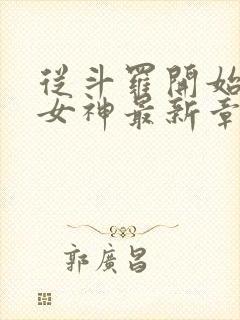 從斗羅開始
女神最新章
郭廣昌